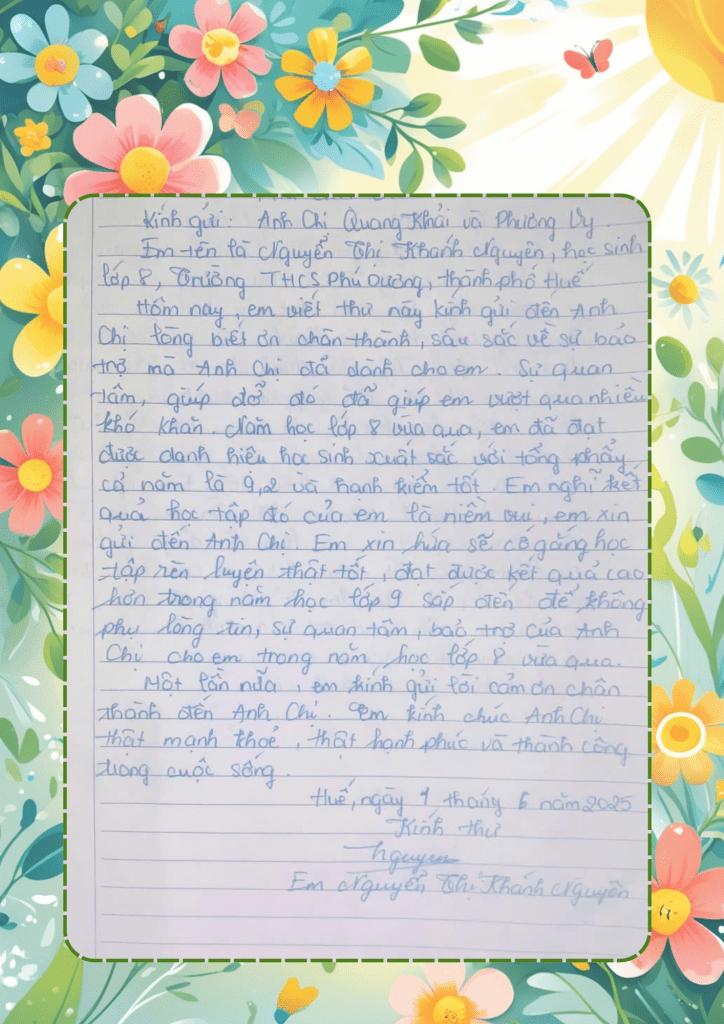 Kính gửi: Anh Chị Quang Khải và Phương Vy.
Em tên là Nguyễn Thị Khánh Nguyên, học sinh
lớp 8, Trường THCS Phú Dương, thành phố Huế
Hôm nay, em viết thư này kính gửi đến Anh
Chị lòng biết ơn chân thành, sâu sắc về sự bảo
trợ mà Anh Chị đã dành cho em. Sự quan
tâm, giúp đỡ đó đã giúp em vượt qua nhiều
khó khăn. Năm học lớp 8 vừa qua, em đã đạt
được danh hiệu học sinh xuất sắc với tổng phẩy
cả năm là 9,2 và hạnh kiểm tốt. Em nghĩ kết
quả học tập đó của em là niềm vui, em xin
gửi đến Anh Chị. Em xin hứa sẽ cố gắng học
tập rèn luyện thật tốt, đạt được kết quả cao
hơn trong năm học lớp 9 sắp đến để không
phụ lòng tin, sự quan tâm, bảo trợ của Anh
Chị cho em trong năm học lớp 8 vừa qua.
Một lần nữa, em kính gửi lời cảm ơn chân
thành đến Anh Chị. Em kính chúc Anh Chị
thật mạnh khoẻ, thật hạnh phúc và thành công
trong cuộc sống.
Huế, ngày tháng 6 năm 2025
Kính thư
Nguyen
Em Nguyễn Thị Khánh Nguyên